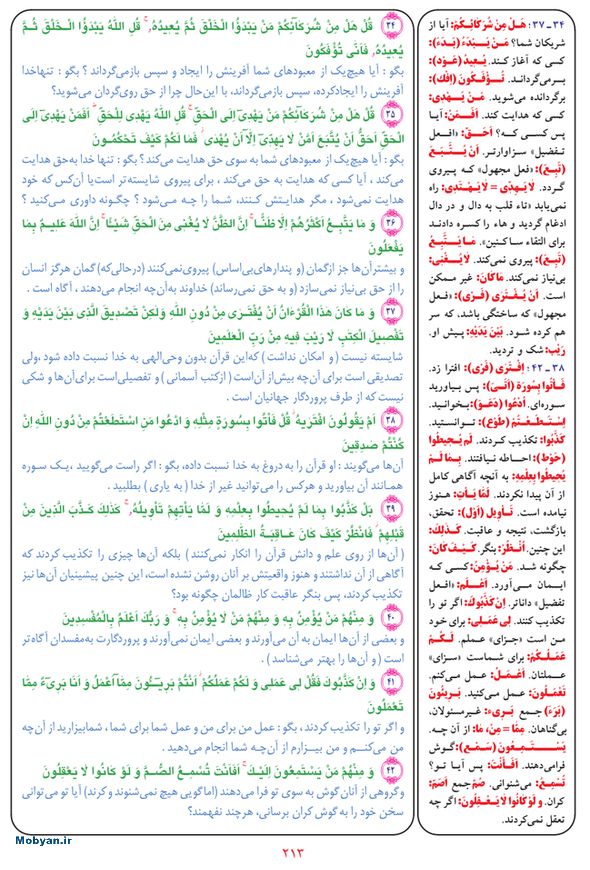 ۳۴ قُلْ هَلْ مِنْ شُرَکَآئِکُمْ مَنْ یَبْدَؤُا الْخَلْقَ ثُمَّ یُعِیدُهُ، قُلِ اللهُ یَبْدَؤُا الْخَلْقَ ثُمَّ
یُعِیدُهُ، فَاَنّٰی تُؤْفَکُونَ
بگو : آیا هیچ‌یک از معبودهای شما آفرینش را ایجاد و سپس بازمی‌گرداند ؟ بگو : تنهاخدا
آفرینش را ایجادکرده، سپس بازمی‌گرداند، با این‌حال چرا از حق روی‌گردان می‌شوید؟
۳۵ قُلْ هَلْ مِنْ شُرَکَآئِکُمْ مَنْ یَهْدِیٓ اِلَی الْحَقِّ قُلِ اللهُ یَهْدِی لِلْحَقِّ اَفَمَنْ یَهْدِیٓ اِلَی
الْحَقِّ اَحَقُّ اَنْ یُتَّبَعَ اَمَّنْ لَا یَهِدِّیٓ اِلَّآ اَنْ یُهْدٰی فَمَا لَکُمْ کَیْفَ تَحْکُمُونَ
بگو: آیا هیچ‌یک از معبودهای شما به سوی حق هدایت می‌کند؟ بگو : تنها خدا به‌حق هدایت
می‌کند ، آیا کسی که هدایت به حق می‌کند ، برای پیروی شایسته‌تر است‌یا آن‌کس که خود
هدایت نمی‌شود ، مگر هدایتش کنند، شما را چه می‌شود ؟ چگونه داوری می‌کنید ؟
۳۶ وَ مَا یَتَّبِعُ اَکْثَرُهُمْ اِلَّا ظَنًّا اِنَّ الظَّنَّ لَا یُغْنِی مِنَ الْحَقِّ شَیْئًا اِنَّ اللهَ عَلِیمٌ بِمَا
یَفْعَلُونَ
و بیشترآن‌ها جز ازگمان (و پندارهای‌بی‌اساس) پیروی‌نمی‌کنند (درحالی‌که) گمان هرگز انسان
را از حق بی‌نیاز نمی‌سازد (و به حق نمی‌رساند) خداوند به‌آن‌چه انجام می‌دهند ، آگاه است .
۳۷ وَ مَا کَانَ هٰذَا الْقُرْءَانُ اَنْ یُفْتَرٰی مِنْ دُونِ اللهِ وَلٰکِنْ تَصْدِیقَ الَّذِی بَیْنَ یَدَیْهِ وَ
تَفْصِیلَ الْکِتٰبِ لَا رَیْبَ فِیهِ مِنْ رَبِّ الْعٰلَمِینَ
شایسته نیست ( و امکان نداشت ) که‌این قرآن بدون وحی‌الهی به خدا نسبت داده شود ،ولی
تصدیقی است برای آن‌چه پیش‌از آن‌است ( ازکتب آسمانی ) و تفصیلی‌است برای‌آن‌ها و شکی
نیست که از طرف پروردگار جهانیان است .
۳۸ اَمْ یَقُولُونَ افْتَرٰیهُ قُلْ فَاْتُوا بِسُورَةٍ مِثْلِهِ وَ ادْعُوا مَنِ اسْتَطَعْتُمْ مِنْ دُونِ اللهِ اِنْ
کُنْتُمْ صٰدِقِینَ
آن‌ها می‌گویند : او قرآن را به دروغ به خدا نسبت داده، بگو : اگر راست می‌گویید ،یک سوره
همانند آن بیاورید و هرکس را می‌توانید غیر از خدا ( به یاری ) بطلبید .
۳۹ بَلْ کَذَّبُوا بِمَا لَمْ یُحِیطُوا بِعِلْمِهِ وَ لَمَّا یَاْتِهِمْ تَاْوِیلُهُ، کَذٰلِکَ کَذَّبَ الَّذِینَ مِنْ
قَبْلِهِمْ فَانْظُرْ کَیْفَ کَانَ عَاقِبَةُ الظّٰلِمِینَ
( آن‌ها از روی علم و دانش قرآن را انکار نمی‌کنند ) بلکه آن‌ها چیزی را تکذیب کردند که
آگاهی از آن نداشتند و هنوز واقعیتش بر آنان روشن نشده است، این چنین پیشینیان آن‌ها نیز
تکذیب کردند، پس بنگر عاقبت کار ظالمان چگونه بود؟
۴۰ وَ مِنْهُمْ مَنْ یُؤْمِنُ بِهِ وَ مِنْهُمْ مَنْ لَا یُؤْمِنُ بِهِ وَ رَبُّکَ اَعْلَمُ بِالْمُفْسِدِینَ
و بعضی از آن‌ها ایمان به آن می‌آورند و بعضی ایمان نمی‌آورند و پروردگارت به‌مفسدان آگاه‌تر
است ( و آن‌ها را بهتر می‌شناسد ) .
۴۱ وَ اِنْ کَذَّبُوکَ فَقُلْ لِی عَمَلِی وَ لَکُمْ عَمَلُکُمْ اَنْتُمْ بَرِیٓئُونَ مِمَّآ اَعْمَلُ وَ اَنَا بَرِیٓءٌ مِمَّا
تَعْمَلُونَ
و اگر تو را تکذیب کردند، بگو : عمل من برای من و عمل شما برای شما ، شمابیزارید از آن‌چه
من می‌کنم و من بیزارم از آن‌چه شما انجام می‌دهید .
۴۲ وَ مِنْهُمْ مَنْ یَسْتَمِعُونَ اِلَیْکَ اَفَاَنْتَ تُسْمِعُ الصُّمَّ وَ لَوْ کَانُوا لَا یَعْقِلُونَ
وگروهی از آنان گوش به سوی تو فرا می‌دهند (اماگویی هیچ نمی‌شنوند وکرند) آیا تو می‌توانی
سخن خود را به گوش کران برسانی، هرچند نفهمند؟
۳۴ ـ ۳۷: هَلْ مِن شُرَکَائِکُمْ: آیا از
شریکان شما؟ مَنْ یَبْدَءُ (بَدَءَ):
کسی که آغاز کند. یُعِیدُ (عَوَدَ):
برمی‌گرداند. تُؤْفَکُونَ (اِفْك):
برگردانده می‌شوید. مَنْ یَهْدِی:
کسی که هدایت کند. أَفَمَنْ: آیا
پس کسی که؟ أَحَقُّ: «افعل
تفضیل» سزاوارتر. أَنْ یُتَّبَعَ
(تَبِعَ): «فعل مجهول» که پیروی
گردد. لا یَهِدِّی = لا یَهْتَدِی: راه
نمی‌یابد «تاء قلب به دال و در دال
ادغام گردید و هاء را کسره دادند
برای التقاء ساکنین». مَا یَتَّبِعُ
(تَبِعَ): پیروی نمی‌کند. لا یُغْنِی:
بی‌نیاز نمی‌کند. مَا کَانَ: غیر ممکن
است. أَنْ یُفْتَرَی (فَرَیَ): «فعل
مجهول» که ساختگی باشد، که سر
هم کرده شود. بَیْنَ یَدَیْهِ: پیش او.
رَیْبَ: شک و تردید.
۳۸ ـ ۴۲: اِفْتَرَی (فَرَیَ): افترا زد.
فَأْتُوا بِسُورَةٍ (أَتَیَ): پس بیاورید
سوره‌ای. اُدْعُوا (دَعَوَ): بخوانید.
اِسْتَطَعْتُمْ (طَوَعَ): توانستید.
کَذَّبُوا: تکذیب کردند. لَمْ یُحِیطُوا
(حَوَطَ): احاطه نیافتند. بِمَا لَمْ
یُحِیطُوا بِعِلْمِهِ: به آنچه آگاهی کامل
از آن پیدا نکردند. لَمَّا یَأْتِ: هنوز
نیامده است. تَأْوِیل (أَوَلَ): تحقق،
بازگشت، نتیجه و عاقبت. کَذلِكَ:
این چنین. اُنْظُرْ: بنگر. کَیْفَ کَانَ:
چگونه شد. مَنْ یُؤْمِنُ: کسی که
ایمان می‌آورد. أَعْلَمُ: «افعل
تفضیل» داناتر. إِنْ کَذَّبُوكَ: اگر تو را
تکذیب کنند. لِی عَمَلِی: برای خود
من است «جزای» عملم. لَکُمْ
عَمَلُکُمْ: برای شماست «سزای»
عملتان. أَعْمَلُ: عمل می‌کنم.
تَعْمَلُونَ: عمل می‌کنید. بَرِیئُونَ
(بَرَءَ) جمع بَرِیء: غیرمسئولان،
بی‌گناهان. مِمَّا = مِنْ، مَا: از آن چه.
یَسْتَمِعُونَ (سَمِعَ): گوش
فرامی‌دهند. أَفَأَنْتَ: پس آیا تو؟
تُسْمِعُ: می‌شنوانی. صُمّ جمع أَصَمّ:
کران. وَ لَوْ کَانُوا لا یَعْقِلُونَ: اگر چه
تعقل نمی‌کردند.
Mobyan.ir
۲۱۳